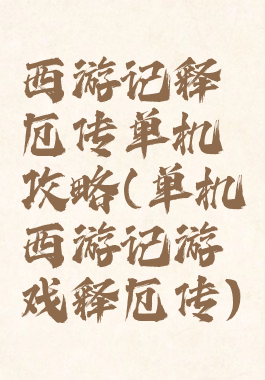 西游记释
厄传单机
攻略(单机
西游记游
戏释厄传)